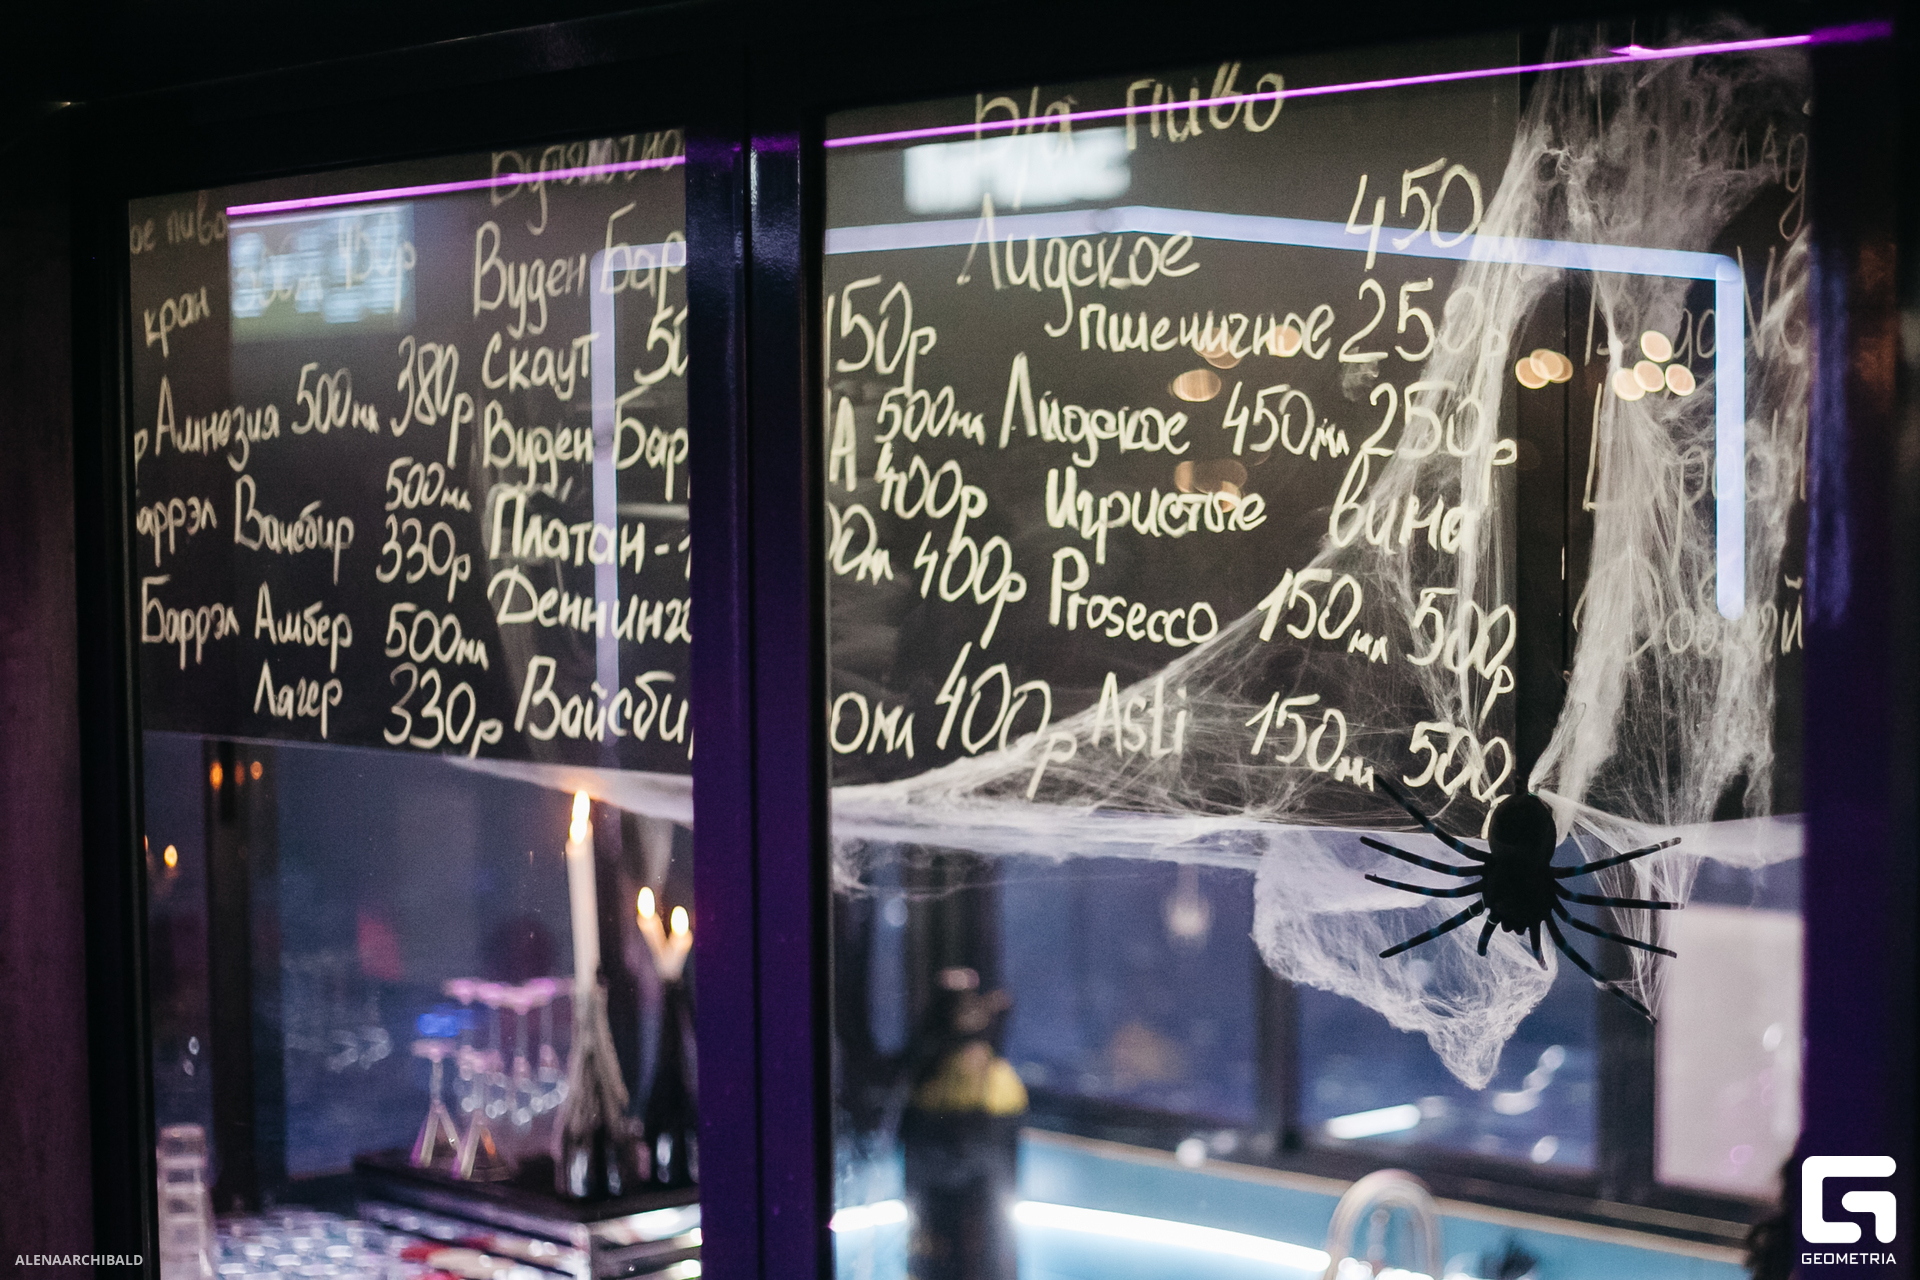 ое пиво
500мл 450р
кран
р Амнезия 500мл 380р
аррэл Вайсбир 500мл 330р
Баррэл Амбер 500мл
Лагер 330р
Бутылочно
Вуден Бар
Скаут 50
Вуден Бар
Платан - 1
Деннингс
Вайсби
150р
А 500мл
400р
00мл 400р
0мл 400р
б/а пиво
Лидское 450
пшеничное 250р
Лидское 450мл 250р
Игристые вина
Prosecco 150мл 500р
Asti 150мл 500
ALENAARCHIBALD
GEOMETRIA